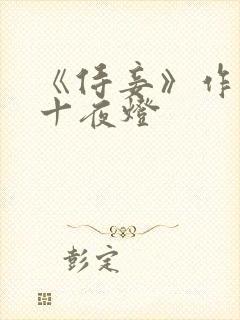 《侍妾》作
十夜燈
彭定